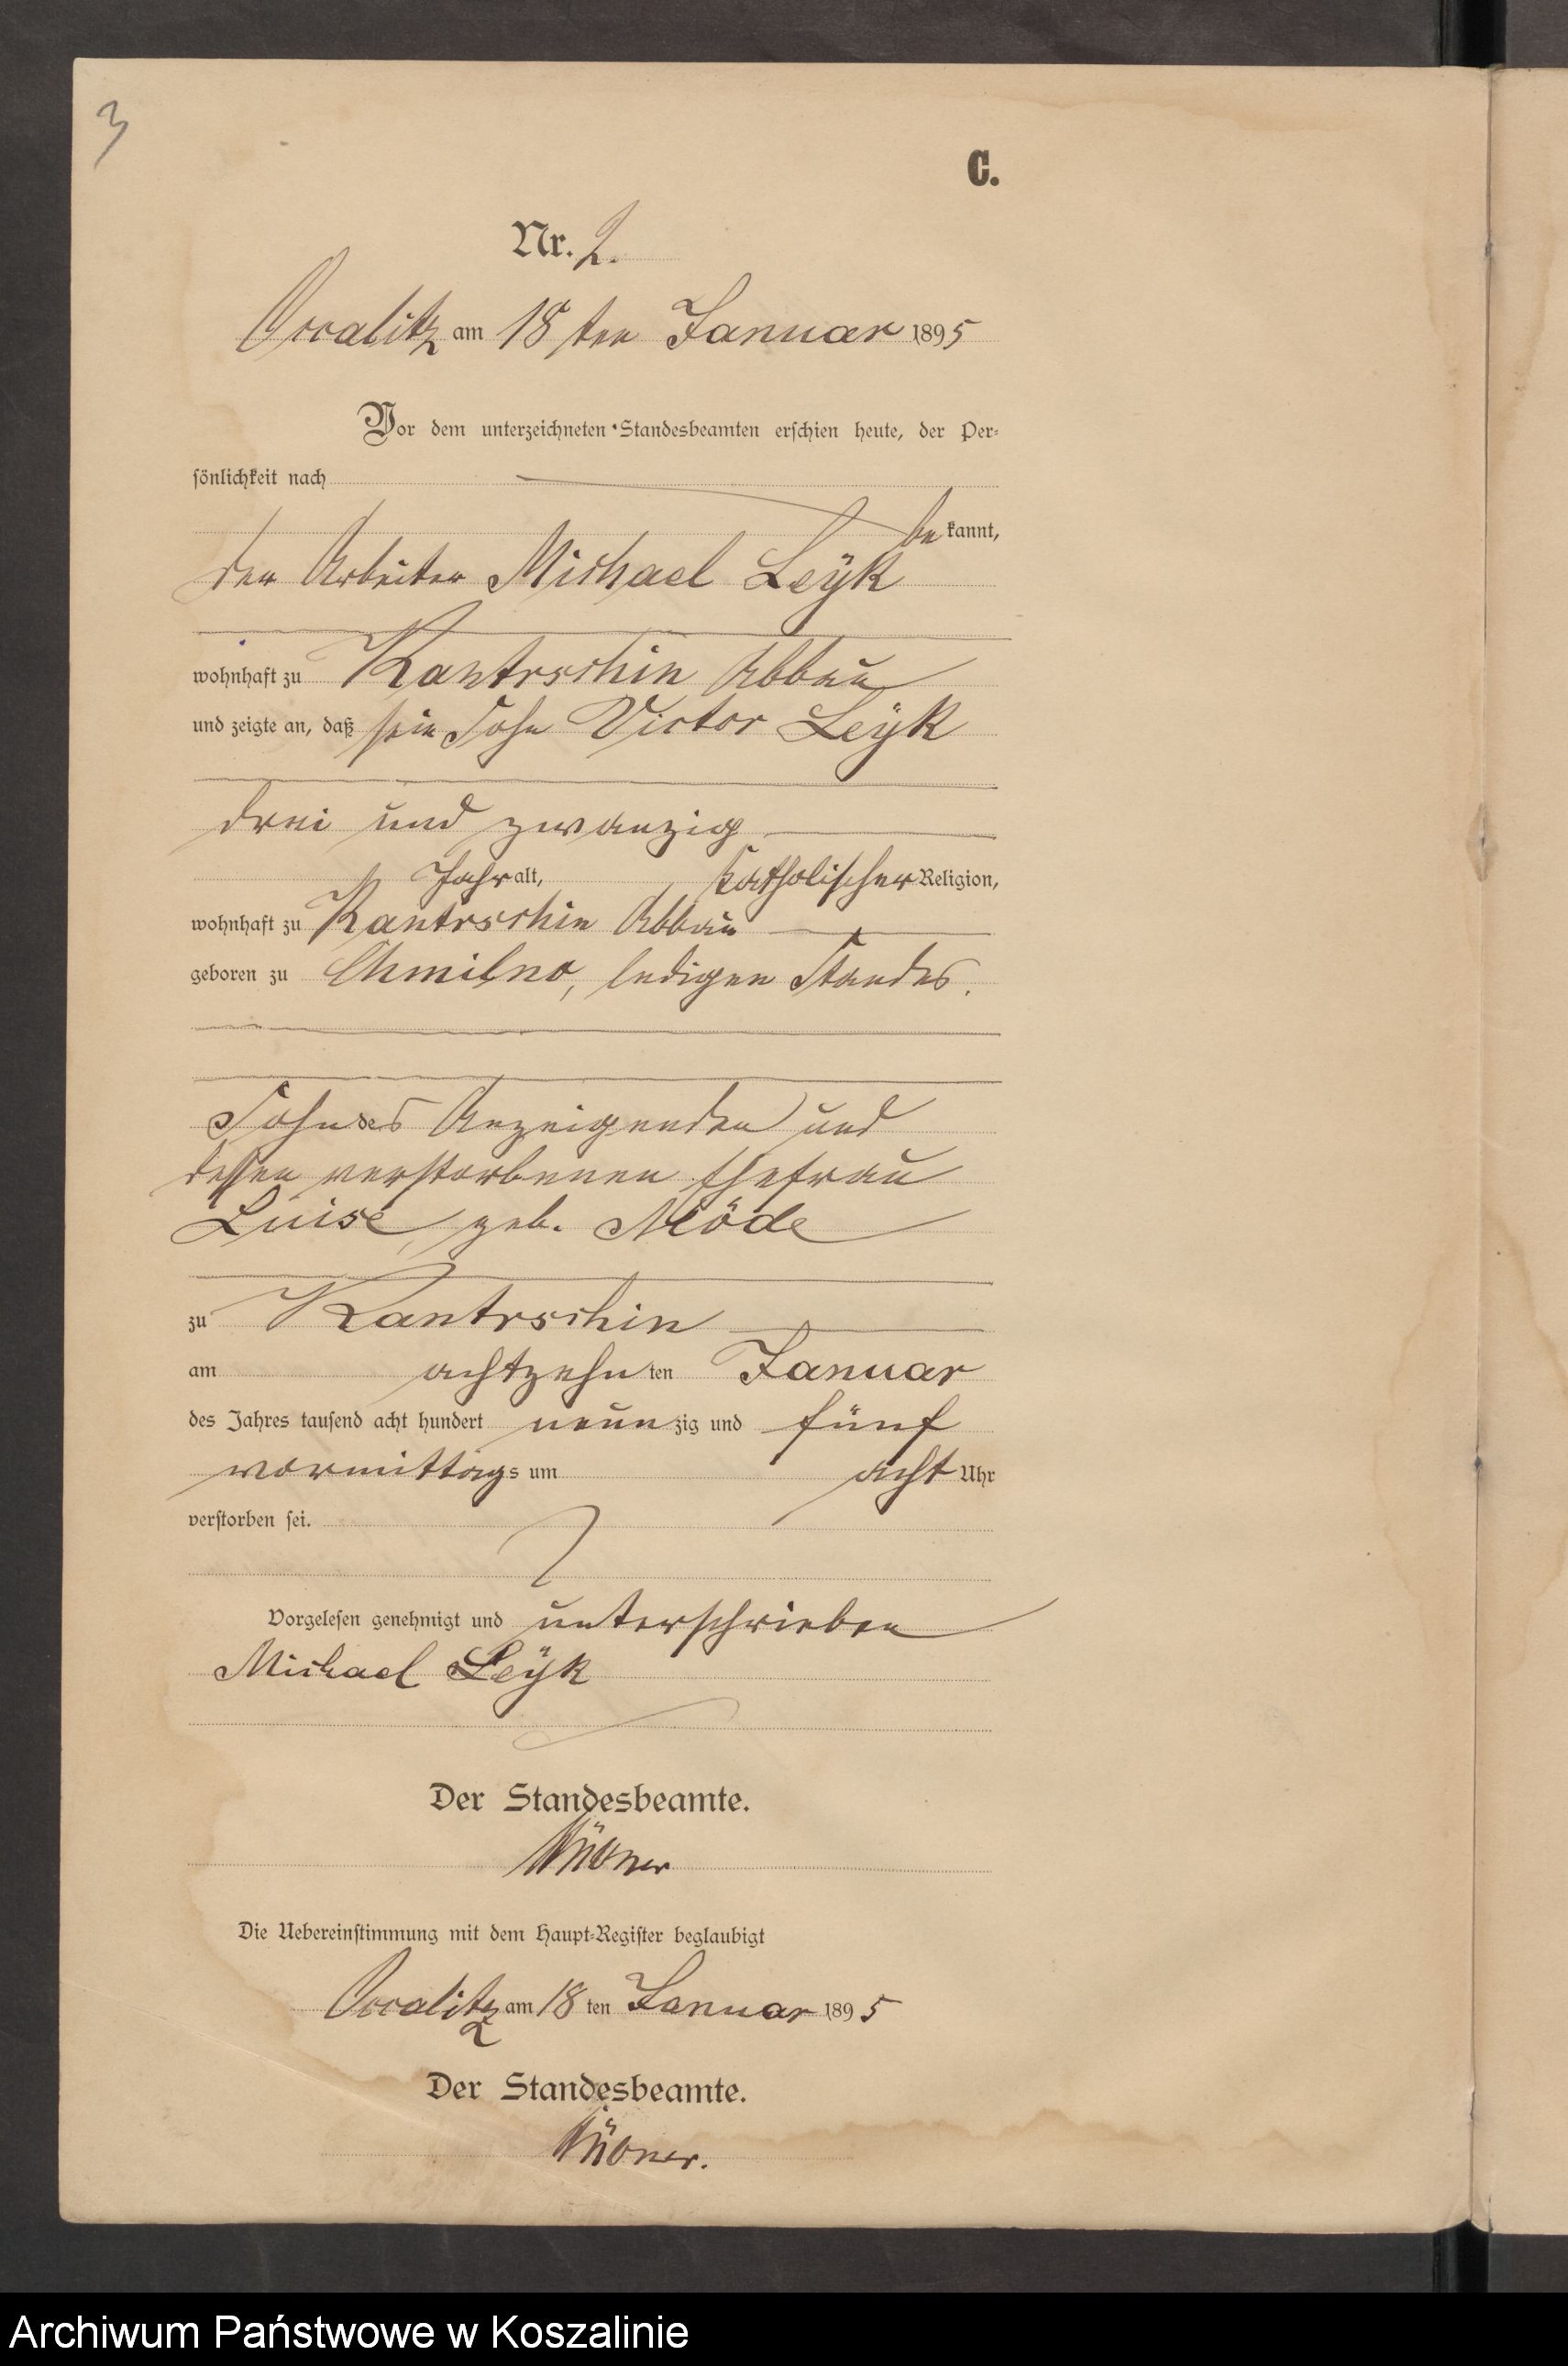 3
C.
Nr. 2.
Occalitz am 18 ten Januar 1895
Vor dem unterzeichneten Standesbeamten erschien heute, der Per-
sönlichkeit nach
be kannt,
der Arbeiter Michael Leÿk
wohnhaft zu Kantrschin Abbau
und zeigte an, daß sein Sohn Victor Leÿk
drei und zwanzig
Jahr alt, katholischer Religion,
wohnhaft zu Kantrschin Abbau
geboren zu Chmilno, ledigen Standes.
Sohn des Anzeigenden und
dessen verstorbenen Ehefrau
Luise, geb. Möde
zu Kantrschin
am achtzehn ten Januar
des Jahres tausend acht hundert neun zig und fünf
vormittags um acht Uhr
verstorben sei.
Vorgelesen genehmigt und unterschrieben
Michael Leÿk
Der Standesbeamte.
Die Uebereinstimmung mit dem Haupt-Register beglaubigt
Occalitz am 18 ten Januar 1895
Der Standesbeamte.
Archiwum Państwowe w Koszalinie